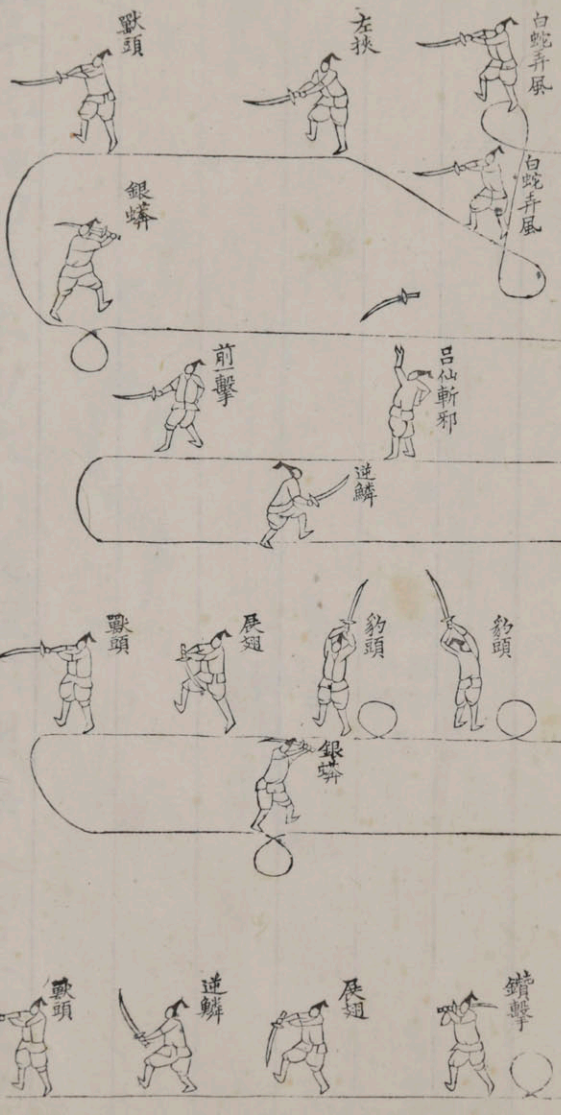 白蛇弄風
左挾
獸頭
白蛇弄風
銀蟒
呂仙斬邪
前一擊
逆鱗
豹頭
豹頭
展翅
獸頭
銀蟒
鑽擊
展翅
逆鱗
獸頭